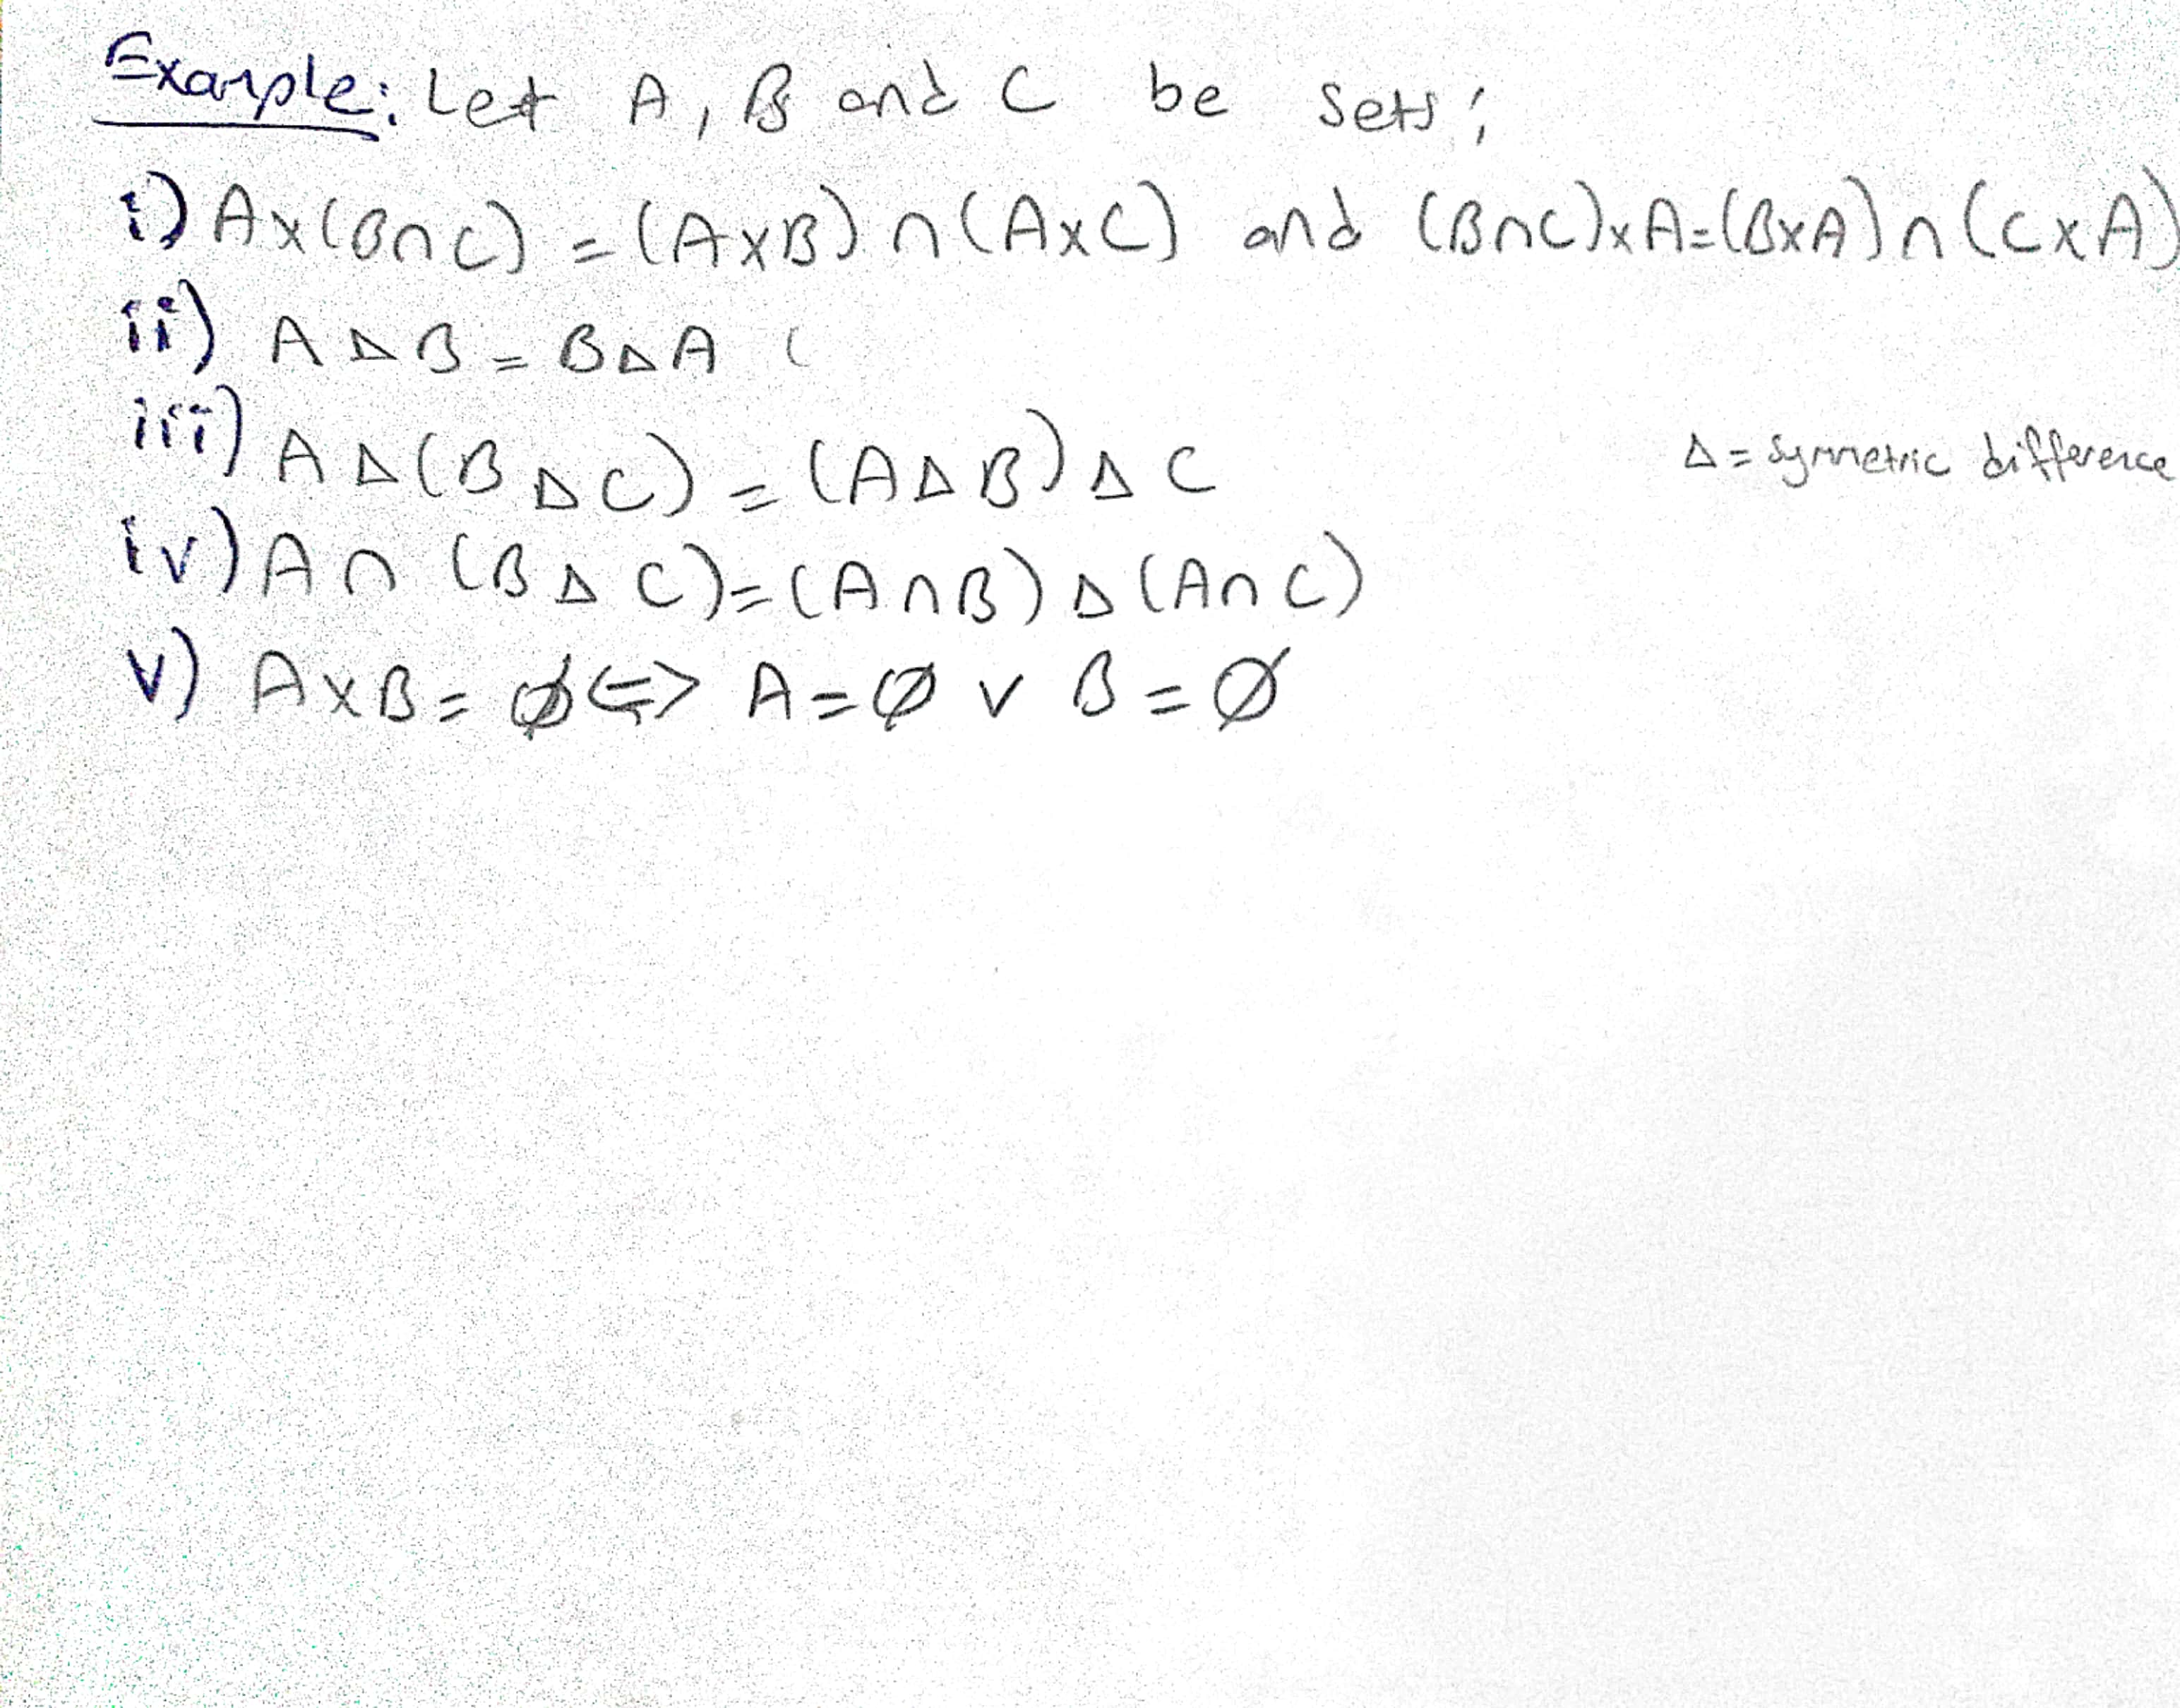 Example: Let A, B and C be sets;
i) A×(B∩C) = (A×B)∩(A×C) and (B∩C)×A=(B×A)∩(C×A)
ii) A Δ B = B Δ A (
iii) A Δ (B Δ C) = (A Δ B) Δ C
Δ = symmetric difference
iv) A ∩ (B Δ C) = (A∩B) Δ (A∩C)
v) A×B = ∅ <=> A = ∅ ∨ B = ∅